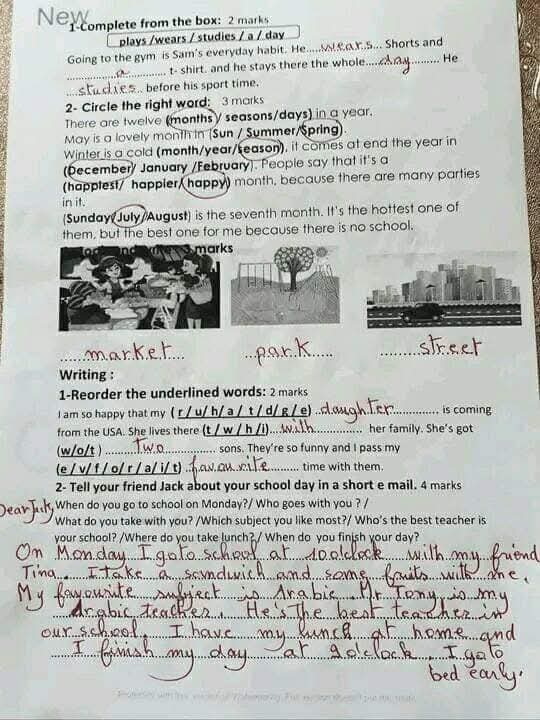 New
1-Complete from the box: 2 marks
plays /wears / studies / a / day
Going to the gym is Sam's everyday habit. He.....wears... Shorts and
..............a............ t- shirt. and he stays there the whole....day........ He
...studies.. before his sport time.
2- Circle the right word: 3 marks
There are twelve (months/ seasons/days) in a year.
May is a lovely month in (Sun / Summer/Spring).
Winter is a cold (month/year/season), it comes at end the year in
(December/ January /February). People say that it's a
(happiest/ happier/ happy) month, because there are many parties
in it.
(Sunday/July/August) is the seventh month. It's the hottest one of
them, but the best one for me because there is no school.
3 marks
......market.... ...park...... .........street
Writing :
1-Reorder the underlined words: 2 marks
I am so happy that my ( r / u / h / a / t / d / g / e) ..daughter............. is coming
from the USA. She lives there (t / w / h / i)....with............ her family. She's got
(w/o/t) .........two............. sons. They're so funny and I pass my
(e / v / f / o / r / a / i / t) ..favourite.......... time with them.
2- Tell your friend Jack about your school day in a short e mail. 4 marks
Dear
When do you go to school on Monday?/ Who goes with you ? /
What do you take with you? /Which subject you like most?/ Who's the best teacher is
your school? /Where do you take lunch?/ When do you finish your day?
On Monday I go to school at 10 o'clock with my friend
Tina. I take a sandwich and some fruits with me.
My favourite subject is Arabic. Mr Tony is my
Arabic teacher. He's the best teacher in
our school. I have my lunch at home and
I finish my day at 9 o'clock I go to
bed early.